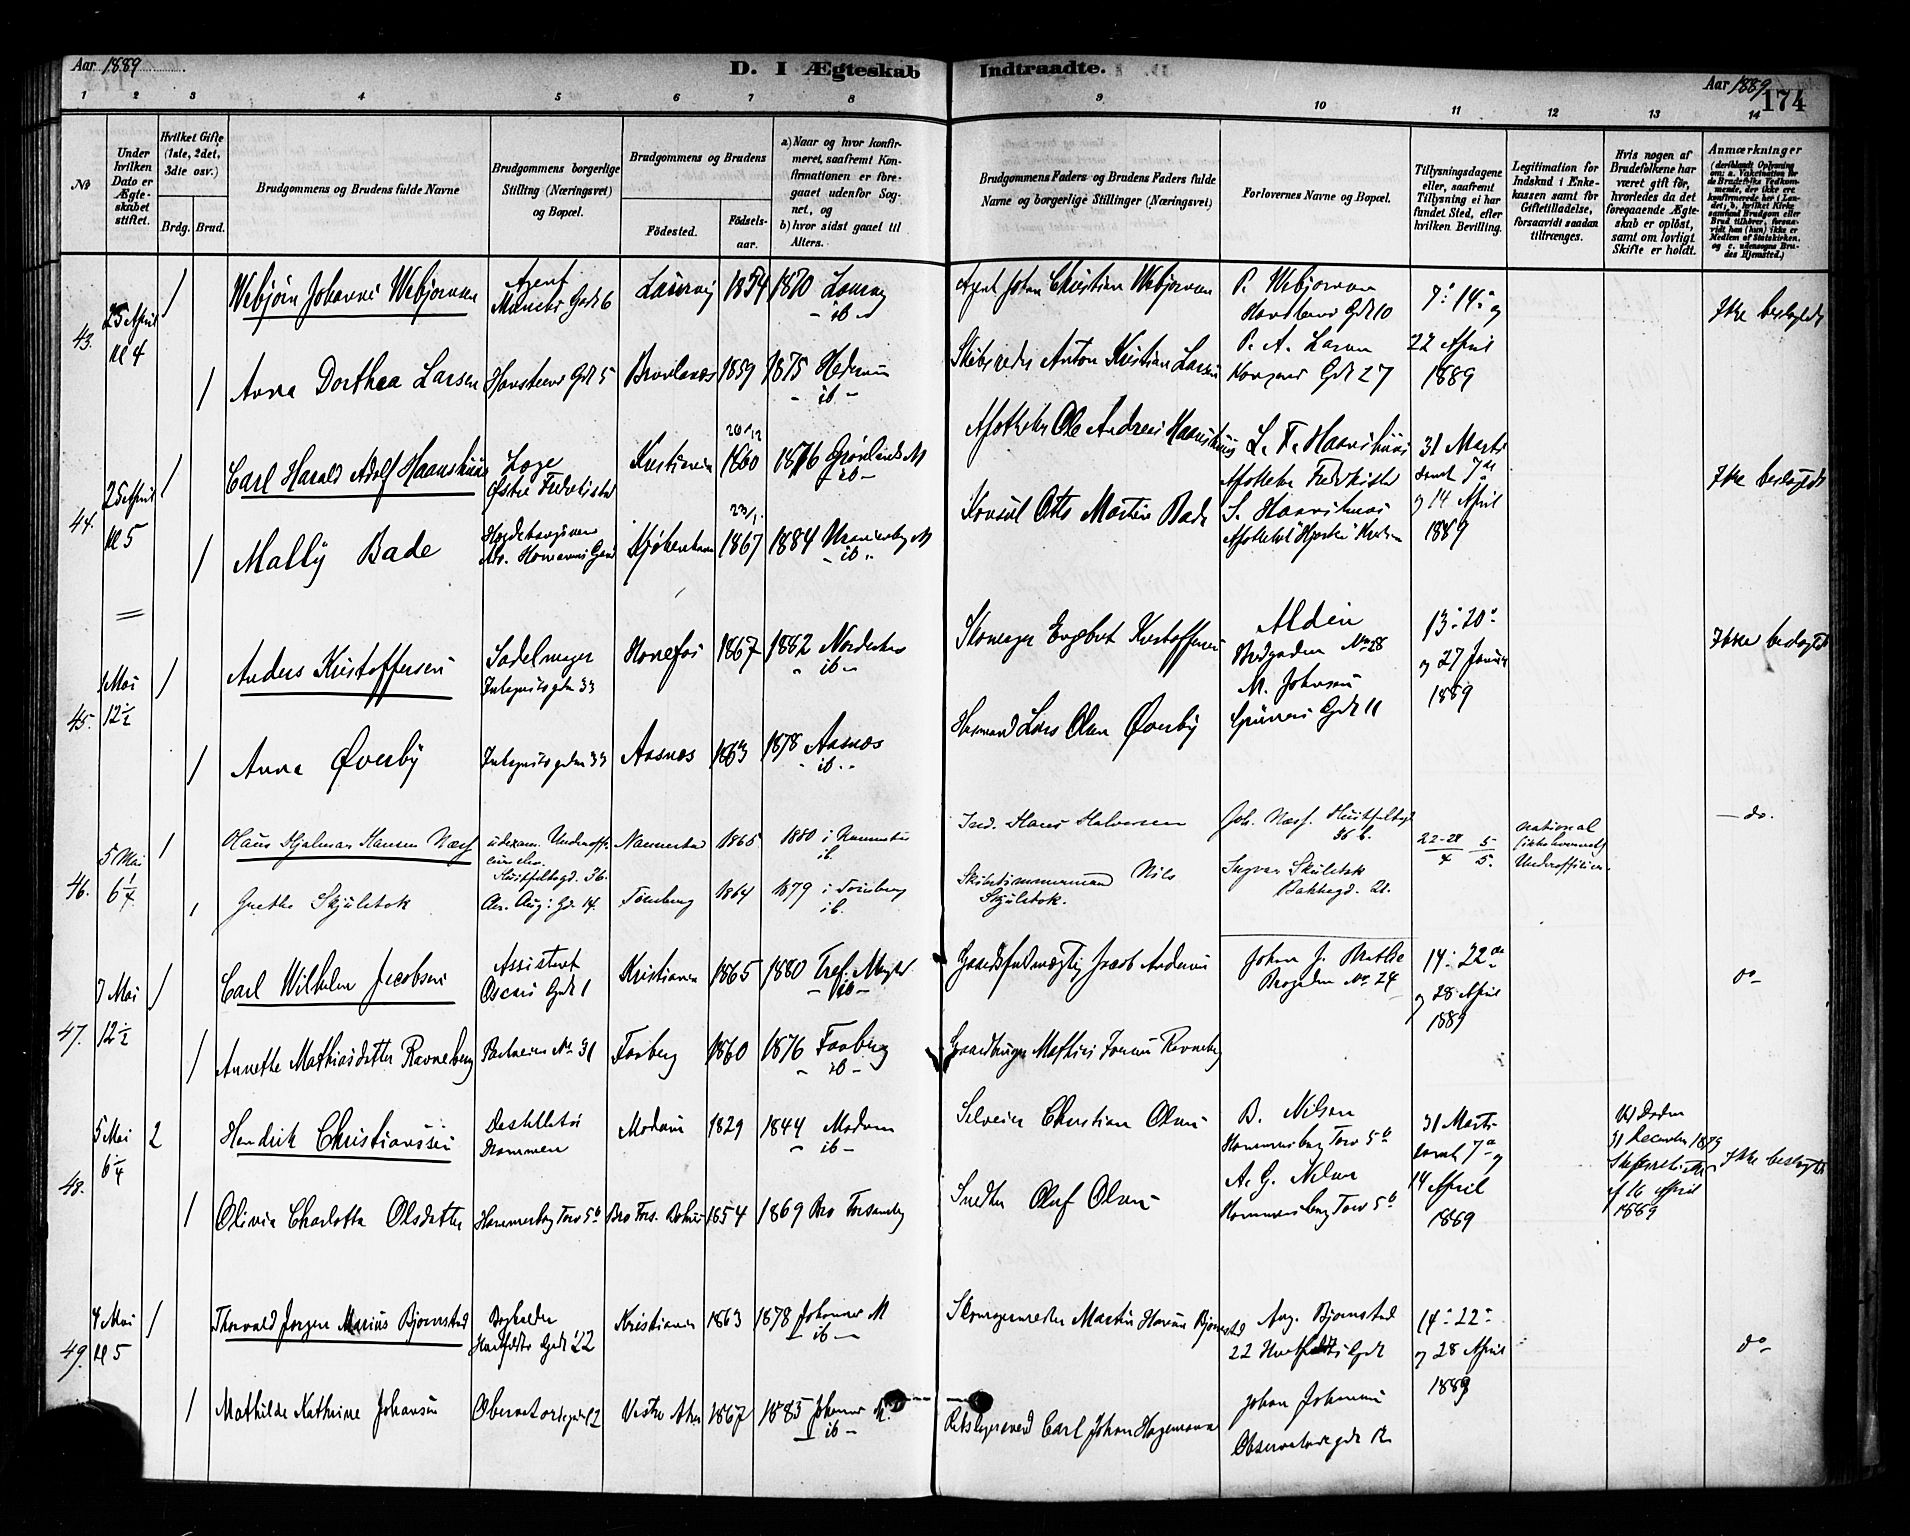 Aar 1889
D. I Ægteskab Indtraadte.
Aar 1889
174
1 2 3 4 5 6 7 8 9 10 11 12 13 14
No
Under hvilken Dato er Ægteskabet stiftet.
Hvilket Gifte (1ste, 2det, 3die osv.)
Brdg. Brud.
Brudgommens og Brudens fulde Navne
Brudgommens borgerlige Stilling (Næringsvei) og Bopæl.
Brudgommens og Brudens
Fødested.
Fødselsaar.
a) Naar og hvor konfirmeret, saafremt Konfirmationen er foregaaet udenfor Sognet, og
b) hvor sidst gaaet til Alters.
Brudgommens Faders og Brudens Faders fulde Navne og borgerlige Stillinger (Næringsvei)
Forlovernes Navne og Bopæl.
Tillysningsdagene eller, saafremt Tillysning ei har fundet Sted, efter hvilken Bevilling.
Legitimation for Indskud i Enkekassen samt for Giftetilladelse, forsaavidt saadan tiltrænges.
Hvis nogen af Brudefolkene har været gift før, hvorledes da det foregaaende Ægteskab er opløst, samt om lovligt Skifte er holdt.
Anmærkninger
43. 25 April Kl 4
1 Webjørn Johannes Webjørnsen Agent Munchs Gade 6 Laurvig 1854 1870 Laurvig - ib - Agent Johan Christian Webjørnsen P. Webjørnsen 7de 14de og Ikke beslægtet
1 Anna Dorthea Larsen Hausteens Gde 5 Brunlanes 1859 1875 Hedrum - ib - Skibsreder Anton Kristian Larsen P. A. Larsen Gde 27 22 April 1889
44. 25 April Kl 5
1 Carl Harald Adolf Haanshuus Læge Østre Fredrikstad Kristiania 20/12 1860 1876 Grønlands M - ib - Apotheker Ole Andreas Haanshuus L. T. Haanshuus Apotheker Fredrikstad 31 Marts samt 7de Ikke beslægtet
1 Mally Bade Kjøbenhavn 1867 1884 Uranienborg M - ib - Konsul Otto Martin Bade S. Haanshuus Apotheket "Hjorten" og 14 April 1889
45. 1 Mai 12 1/2
1 Anders Kristoffersen Sadelmager 33 Hønefos 1867 1882 Norderhov - ib - Skomager Engebret Kristoffersen Aldin Bredgaden No 28 13de 20de og 27 Januar 1889 Ikke beslægtet
1 Anna Øverby 33 Aasnes 1863 1878 Aasnes - ib - Husmand Lars Olsen Øverby M. Johnsen Grüners Gde 11
46. 5 Mai 6 1/4
1 Hans Hjalmar Hansen Næss udexam. Underofficerselev. Huitfeldtsgd. 36. Nannestad 1865 1880 i Nannestad ib. Ind. Hans Halvorsen Joh. Næss. Huitfeldtsgd 36 b. 22-28/4 5/5 national Underofficer - do.
1 Grethe Skjulstok Aug: Gd. 14. Tønsberg 1864 1879 i Tønsberg ib. Skibstømmermand Nils Skjulstok. Ingvar Skulstok Bakkegd. 21.
47. 7 Mai 12 1/2
1 Carl Wilhelm Jacobsen Assistent Oscars Gade 1 Kristiania 1865 1880 Tref. Mngh. - ib - Gaardsfuldmægtig Jacob Andersen Johan J. No 24 14de 22de og 28 April 1889 do
1 Annette Mathiasdatter Ravneberg No 31 Faaberg 1860 1876 Faaberg - ib - Gaardbruger Mathias Jensen Ravneberg
48. 5 Mai 6 1/4
2 Hendrik Christianssen Destillatør Drammen Modum 1829 1844 Modum - ib - Selveier Christian Olsen B. Nilsen Hammersborg Torv 5b 31 Marts samt 7de og ved Døden 31 December 1879 Ikke beslægtet
1 Olivia Charlotta Olsdatter Hammersborg Torv 5b Bro Fors. 1854 1869 Bro Forsamling Snedker Oluf Olsen A. G. Nilsen Hammersborg Torv 5b 14 April 1889 af 16 April 1889
49. 4 Mai Kl 5
1 Thorvald Jørgen Marius Bjørnstad Bogholder Huitfeldts Gade 22 Kristiania 1863 1878 Johannes M - ib - Skomagermester Martin Hansen Bjørnstad Aug. Bjørnstad 22 Huitfeldts Gde 14de 22de og 28 April 1889 do
1 Mathilde Kathrine Johansen Observatoriegade 12 Vestre Aker 1867 1883 Johannes M. - ib - Carl Johan Hagemann Johan Johansen Observatoriegde 12